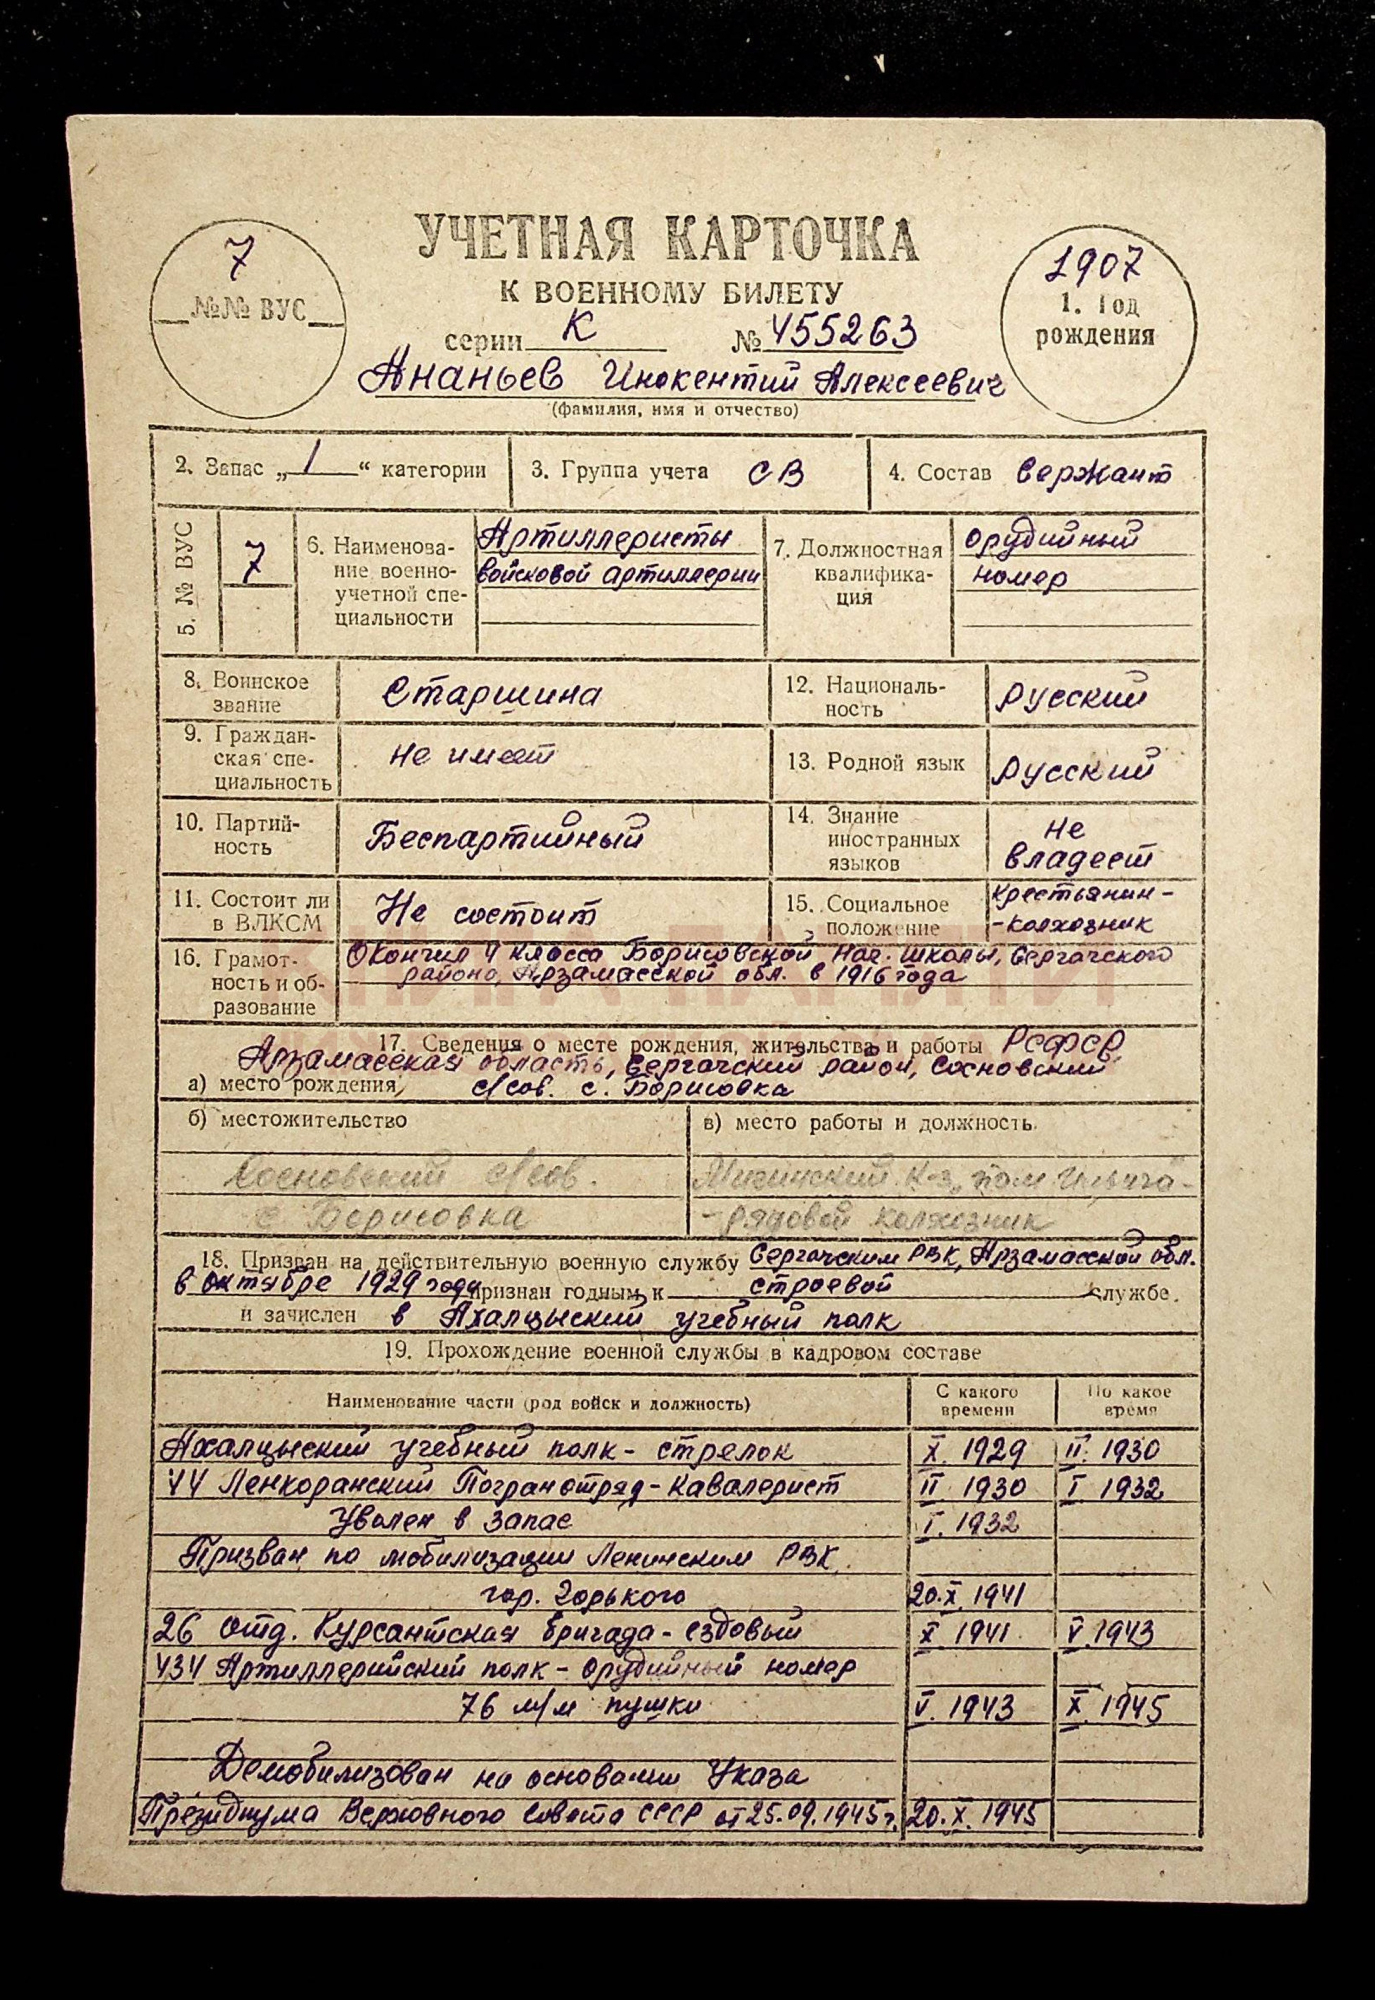 УЧЕТНАЯ КАРТОЧКА
К ВОЕННОМУ БИЛЕТУ
серии К № 455263
7
№№ ВУС
1907
1. Год
рождения
Ананьев Инокентий Алексеевич
(фамилия, имя и отчество)
2. Запас „ 1 “ категории
3. Группа учета СВ
4. Состав Сержант
5. № ВУС
7
6. Наименова-
ние военно-
учетной спе-
циальности
Артиллеристы
войсковой артиллерии
7. Должностная
квалифика-
ция
орудийный
номер
8. Воинское
звание
Старшина
12. Националь-
ность
Русский
9. Граждан-
ская спе-
циальность
не имеет
13. Родной язык
Русский
10. Партий-
ность
Беспартийный
14. Знание
иностранных
языков
не
владеет
11. Состоит ли
в ВЛКСМ
Не состоит
15. Социальное
положение
Крестьянин-
-колхозник
КНИГА ПАМЯТИ
16. Грамот-
ность и об-
разование
Окончил 4 класса Борисовской Нач. школы, Сергачского
района, Арзамасской обл. в 1916 года
17. Сведения о месте рождения, жительства и работы РСФСР,
Арзамасская область, Сергачский район, Сосновский
а) место рождения, с/сов. с. Борисовка
б) местожительство
Сосновский с/сов.
с Борисовка
в) место работы и должность
к-з „пам. Ильича“
-рядовой колхозник
18. Призван на действительную военную службу Сергачским РВК, Арзамасской обл.
в октябре 1929 года признан годным к строевой службе.
и зачислен в Ахалцыский учебный полк
19. Прохождение военной службы в кадровом составе
Наименование части (род войск и должность)
С какого
времени
По какое
время
Ахалцыский учебный полк - стрелок X. 1929 II. 1930
44 Ленкоранский Погранотряд - кавалерист II. 1930 I. 1932
Уволен в запас I. 1932
Призван по мобилизации Ленинским РВК
гор. Горького 20.X. 1941
26 отд. Курсантская бригада - ездовый X. 1941. V. 1943
434 Артиллерийский полк - орудийный номер
76 м/м пушки V. 1943 X. 1945
Демобилизован на основании Указа
Президиума Верховного Совета СССР от 25.09.1945 г. 20.X. 1945